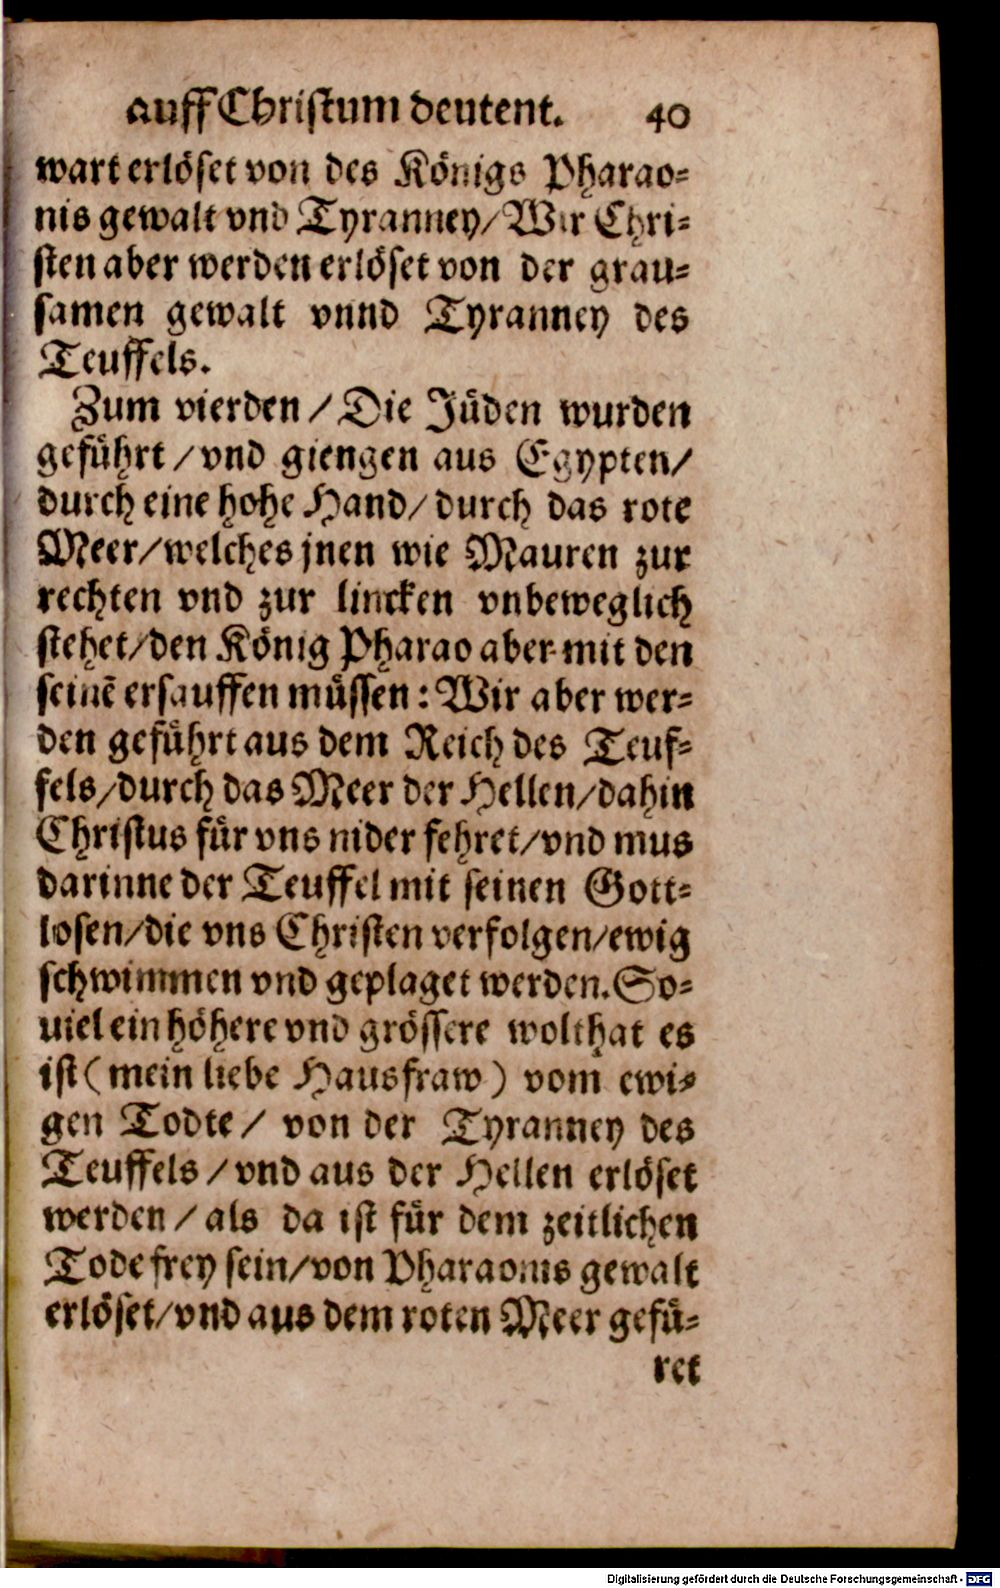 auff Christum deutent. 40
wart erlöset von des Königs Pharao-
nis gewalt vnd Tyranney/Wir Chri-
sten aber werden erlöset von der grau-
samen gewalt vnnd Tyranney des
Teuffels.
Zum vierden / Die Jüden wurden
geführt / vnd giengen aus Egypten/
durch eine hohe Hand/ durch das rote
Meer/welches jnen wie Mauren zur
rechten vnd zur lincken vnbeweglich
stehet/den König Pharao aber mit den
seinē ersauffen müssen: Wir aber wer-
den geführt aus dem Reich des Teuf-
fels/durch das Meer der Hellen/dahin
Christus für vns nider fehret/vnd mus
darinne der Teuffel mit seinen Gott-
losen/die vns Christen verfolgen/ewig
schwimmen vnd geplaget werden. So-
uiel ein höhere vnd grössere wolthat es
ist (mein liebe Hausfraw) vom ewi-
gen Todte / von der Tyranney des
Teuffels / vnd aus der Hellen erlöset
werden / als da ist für dem zeitlichen
Tode frey sein/von Pharaonis gewalt
erlöset/vnd aus dem roten Meer gefü-
ret
Digitalisierung gefördert durch die Deutsche Forschungsgemeinschaft - DFG